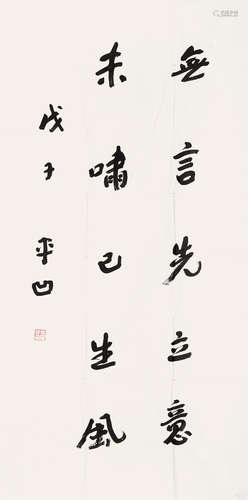 無言先立意
未嘯已生風
戊子 平凹